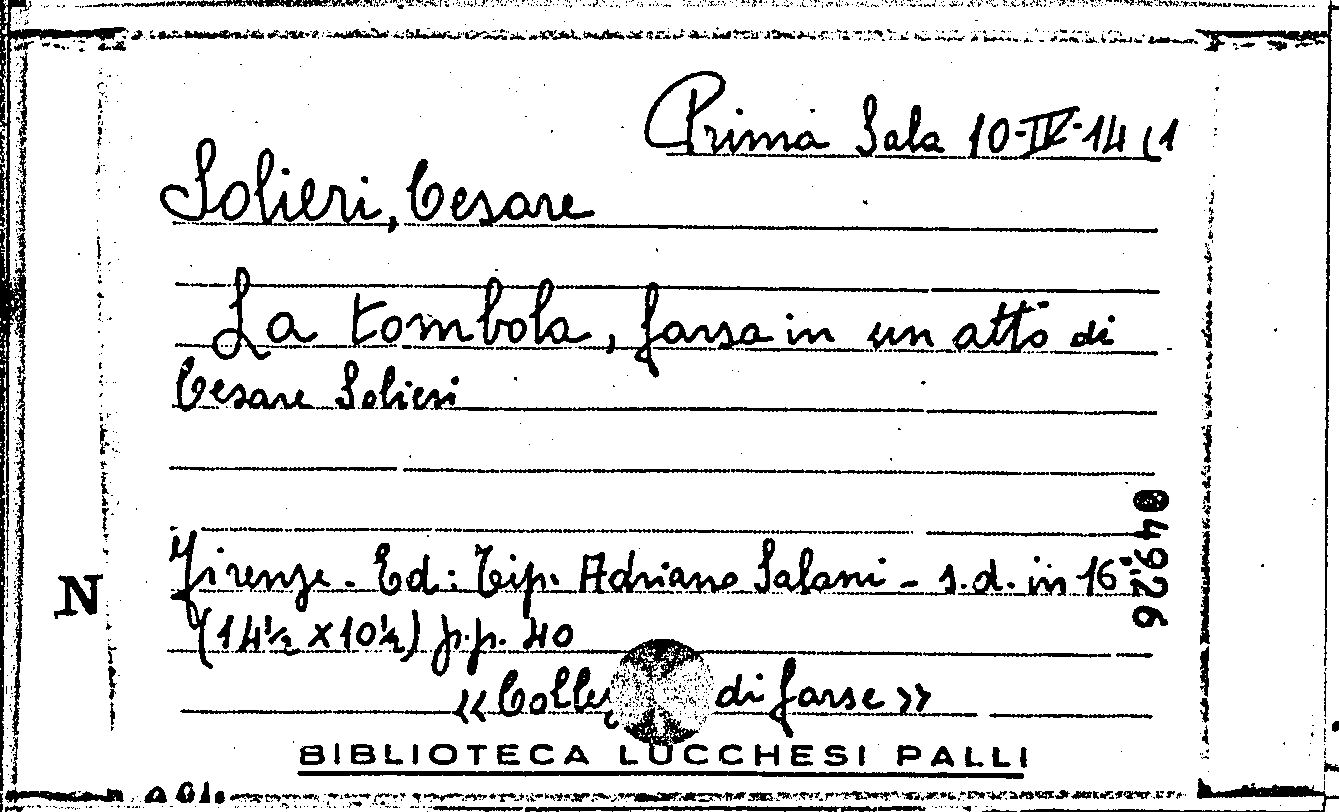 Prima Sala 10-IV-14 (1
Solieri, Cesare
La tombola, farsa in un atto di
Cesare Solieri
Firenze - Ed: Tip. Adriano Salani - s.d. in 16°
(14½ x 10½) p.p. 40
«Colle di farse»
BIBLIOTECA LUCCHESI PALLI
N
04926